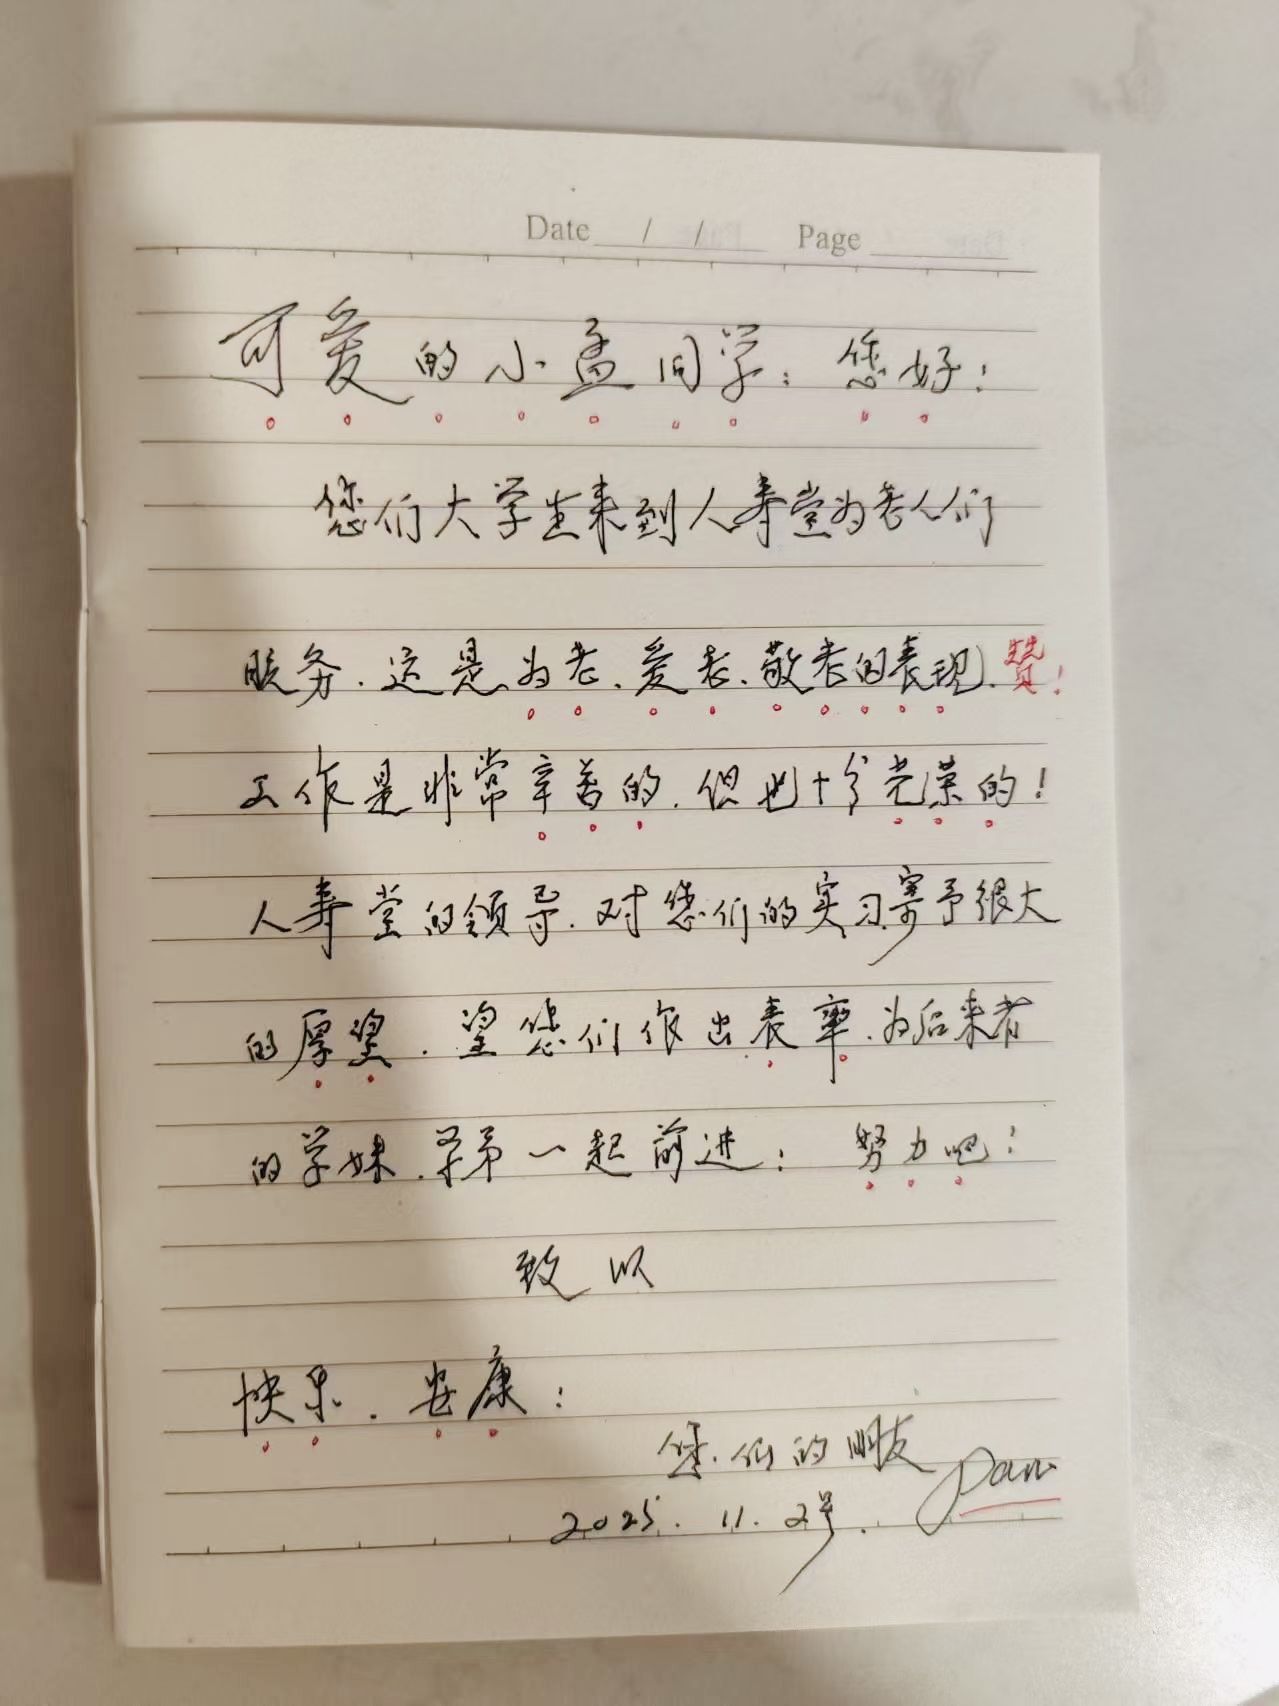 Date / / Page
可爱的小孟同学：您好！
您们大学生来到人寿堂为老人们
服务.这是为老、爱老、敬老的表现.赞！
工作是非常辛苦的.但也十分光荣的！
人寿堂的领导.对您们的实习寄予很大
的厚望.望您们作出表率.为后来者
的学妹.学弟一起前进！努力吧！
致以
快乐.安康！
您们的朋友
2025.11.2号.